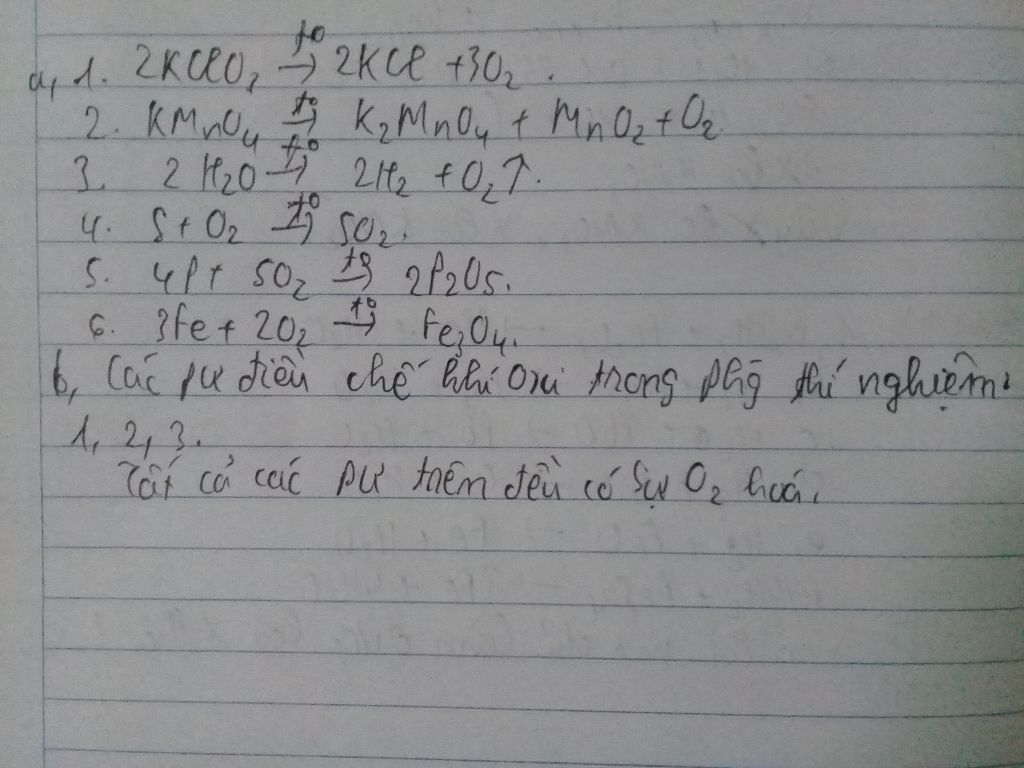 a, 1. 2KClO₃ t⁰→ 2KCl + 3O₂.
2. KMnO₄ t⁰→ K₂MnO₄ + MnO₂ + O₂
3. 2H₂O t⁰→ 2H₂ + O₂↑.
4. S + O₂ t⁰→ SO₂.
5. 4P + 5O₂ t⁰→ 2P₂O₅.
6. 3Fe + 2O₂ t⁰→ Fe₃O₄.
b, Các pư điều chế khí oxi trong phg thí nghiệm:
1, 2, 3.
Tất cả các pư trên đều có sự O₂ hoá.